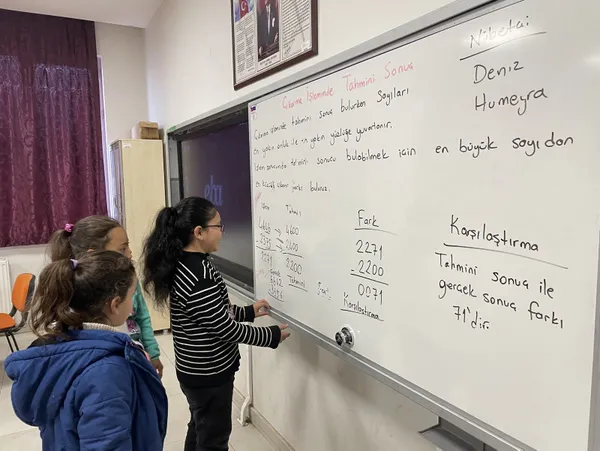 Nöbetçi
Deniz
Humeyra
Çıkarma İşleminde Tahmini Sonuç
Çıkarma işleminde tahmini sonuç bulurken sayıları
en yakın onluk ile en yakın yüzlüğe yuvarlanır.
İşlem sonucunda tahmini sonucu bulabilmek için en büyük sayıdan
en küçük olanın farkı bulunur.
Tahmini
4600
2271
2200
Tahmini
Fark
2271
- 2200
0071
Karşılaştırma
Karşılaştırma
Tahmini sonuç ile
gerçek sonuç farkı
71'dir.